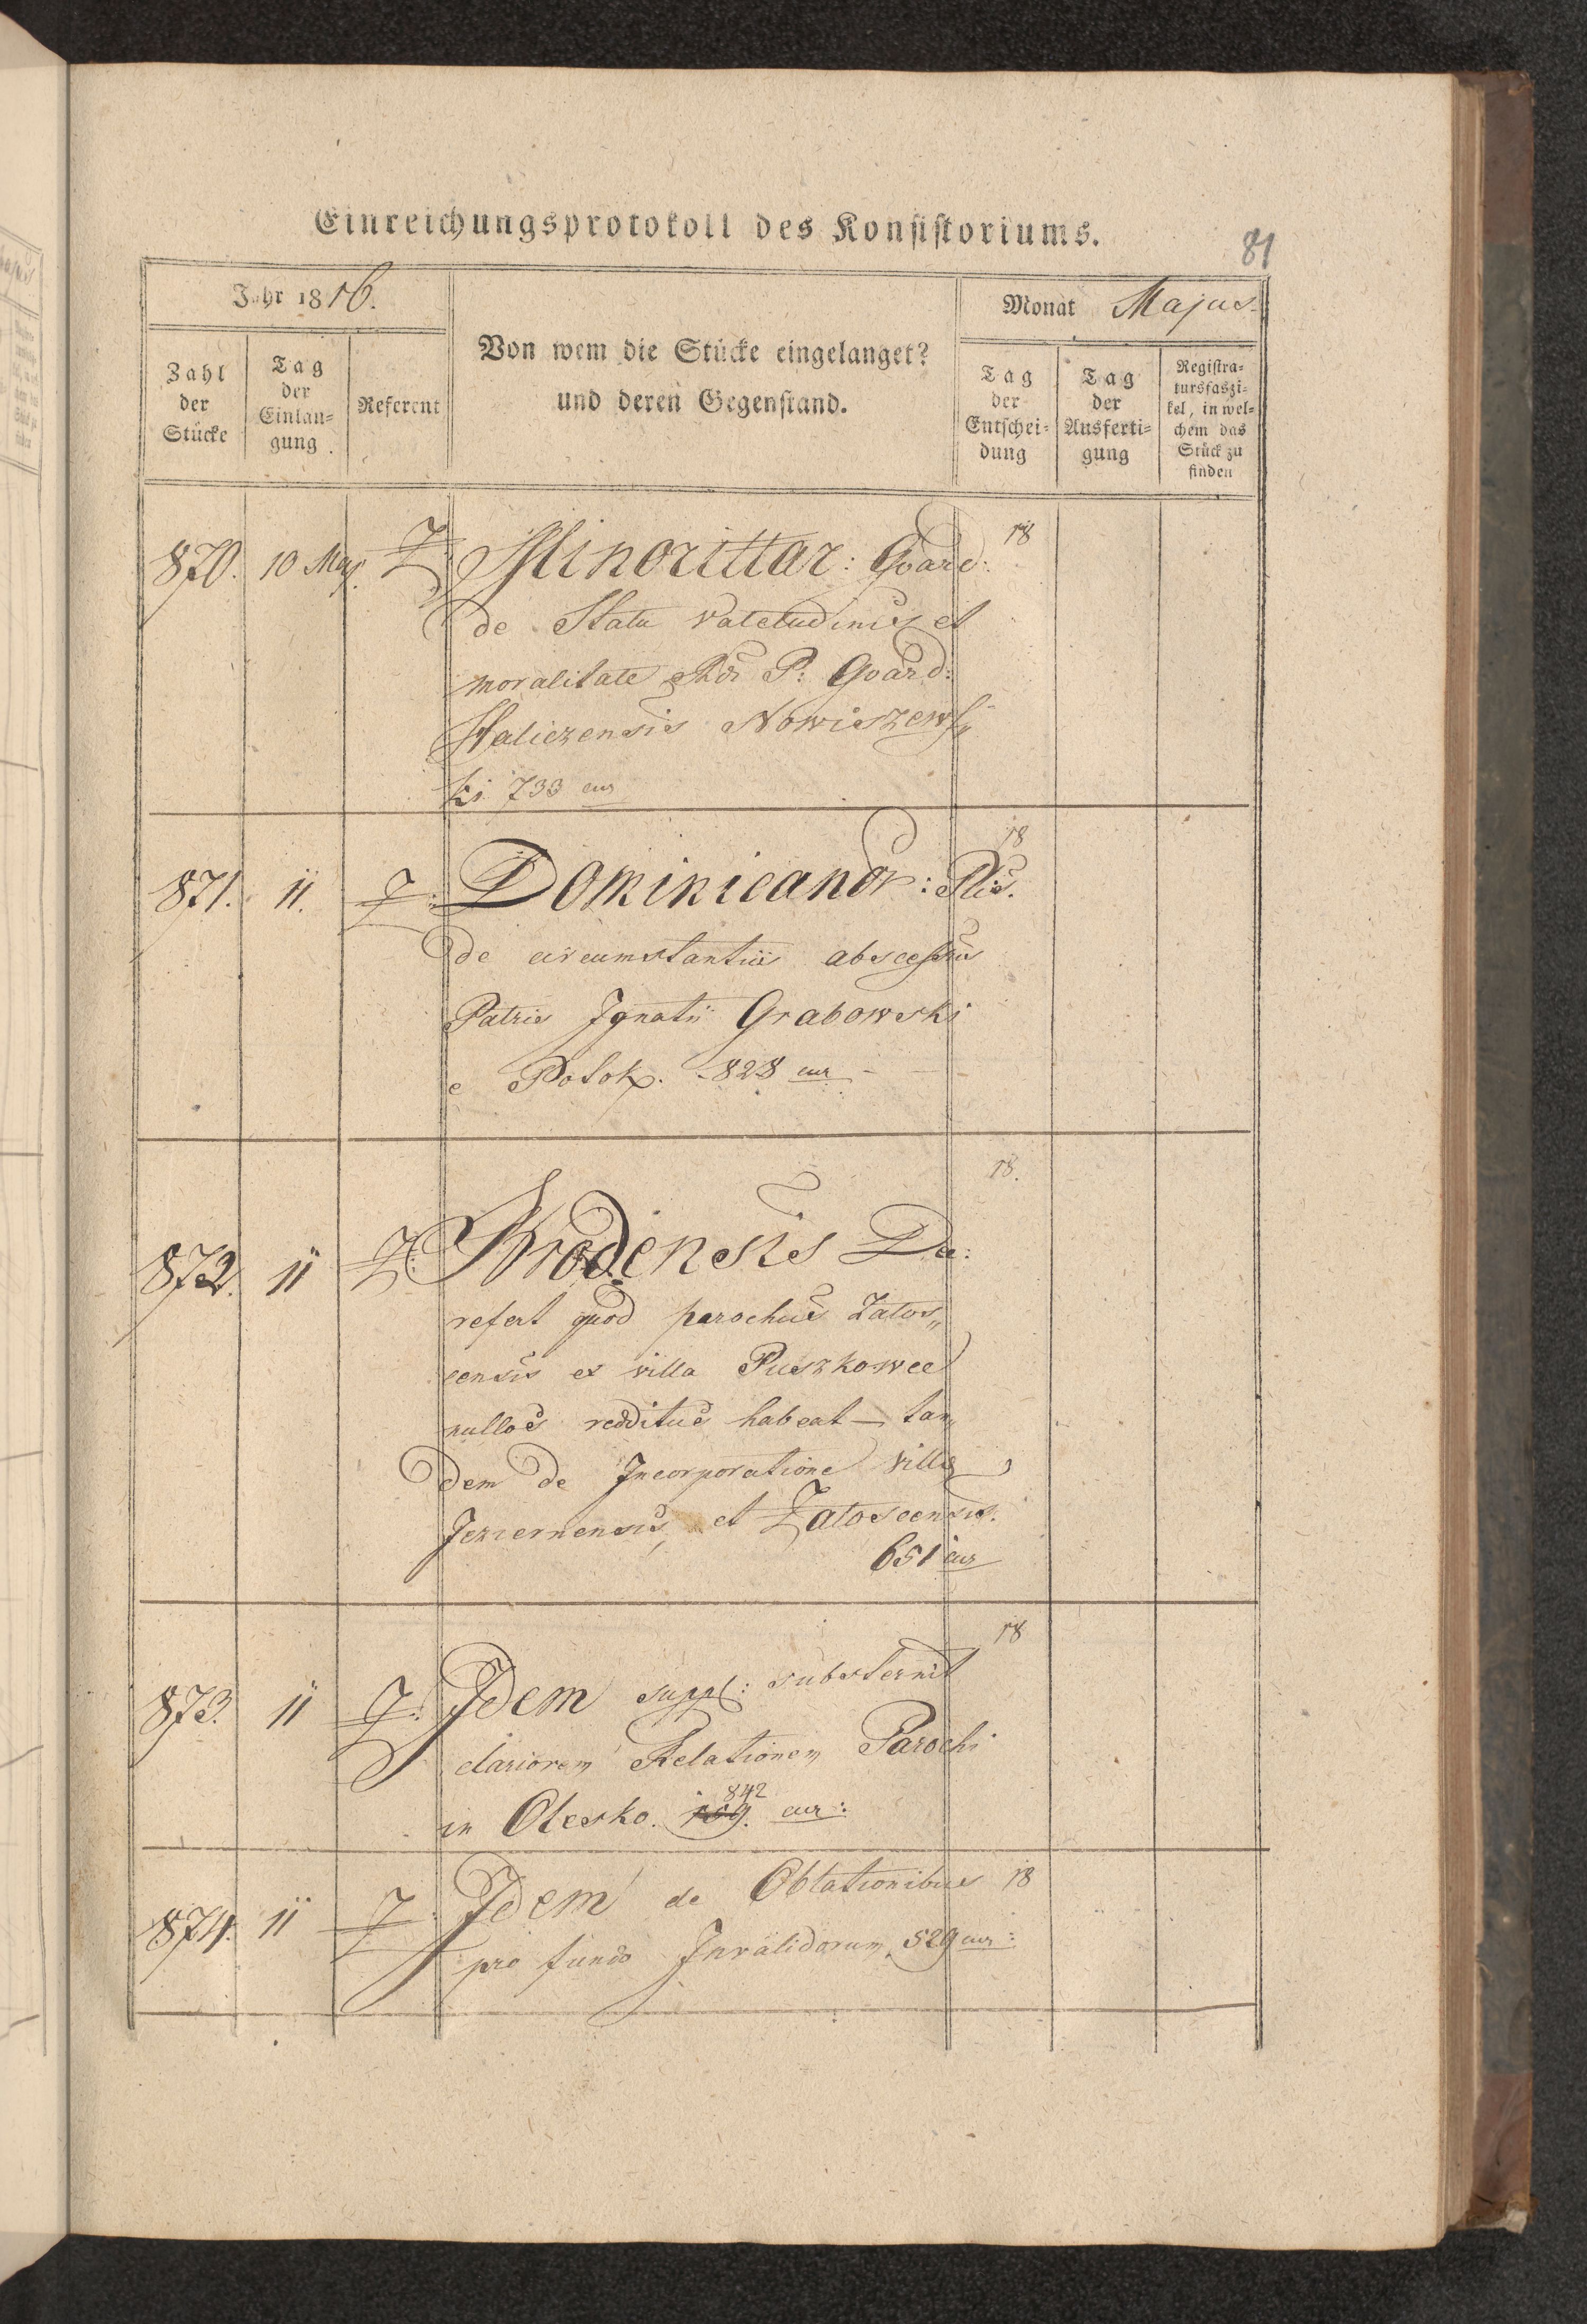 Einreichungsprotokoll des Konsistoriums.
81
Jahr 1816.
Monat Majus.
Zahl der Stücke
Tag der Einlan=gung
Referent
Von wem die Stücke eingelanget?
und deren Gegenstand.
Tag der Entschei=dung
Tag der Ausferti=gung
Registra=tursfaszi=kel, in wel=chem das Stück zu finden
870. 10 Maj. Z Minorittar: Gvard: 18
de Statu valetudinis et
moralitate P: Gvard:
Haliczensis Nowiszews„
ki 733 cur
871. 11. Z: Dominicanor: 18
de circumstantiis abscessus
Patris Ignatii Grabowski
e Potok. 828 cur
872. 11 Z: Brodensis De: 18.
refert quod parochus Zalos„
censis ex villa Puszkowce
nullos redditus habeat — tan„
dem de Incorporatione villæ
Jeziernensis, et Zaloscensis.
651 cur
873. 11 Z: Idem suppl: substernit 18
clariorem Relationem Parochi
in Olesko. 842 cur:
874. 11 Z: Idem de Oblationibus 18
pro fundo Invalidorum. 529 cur: